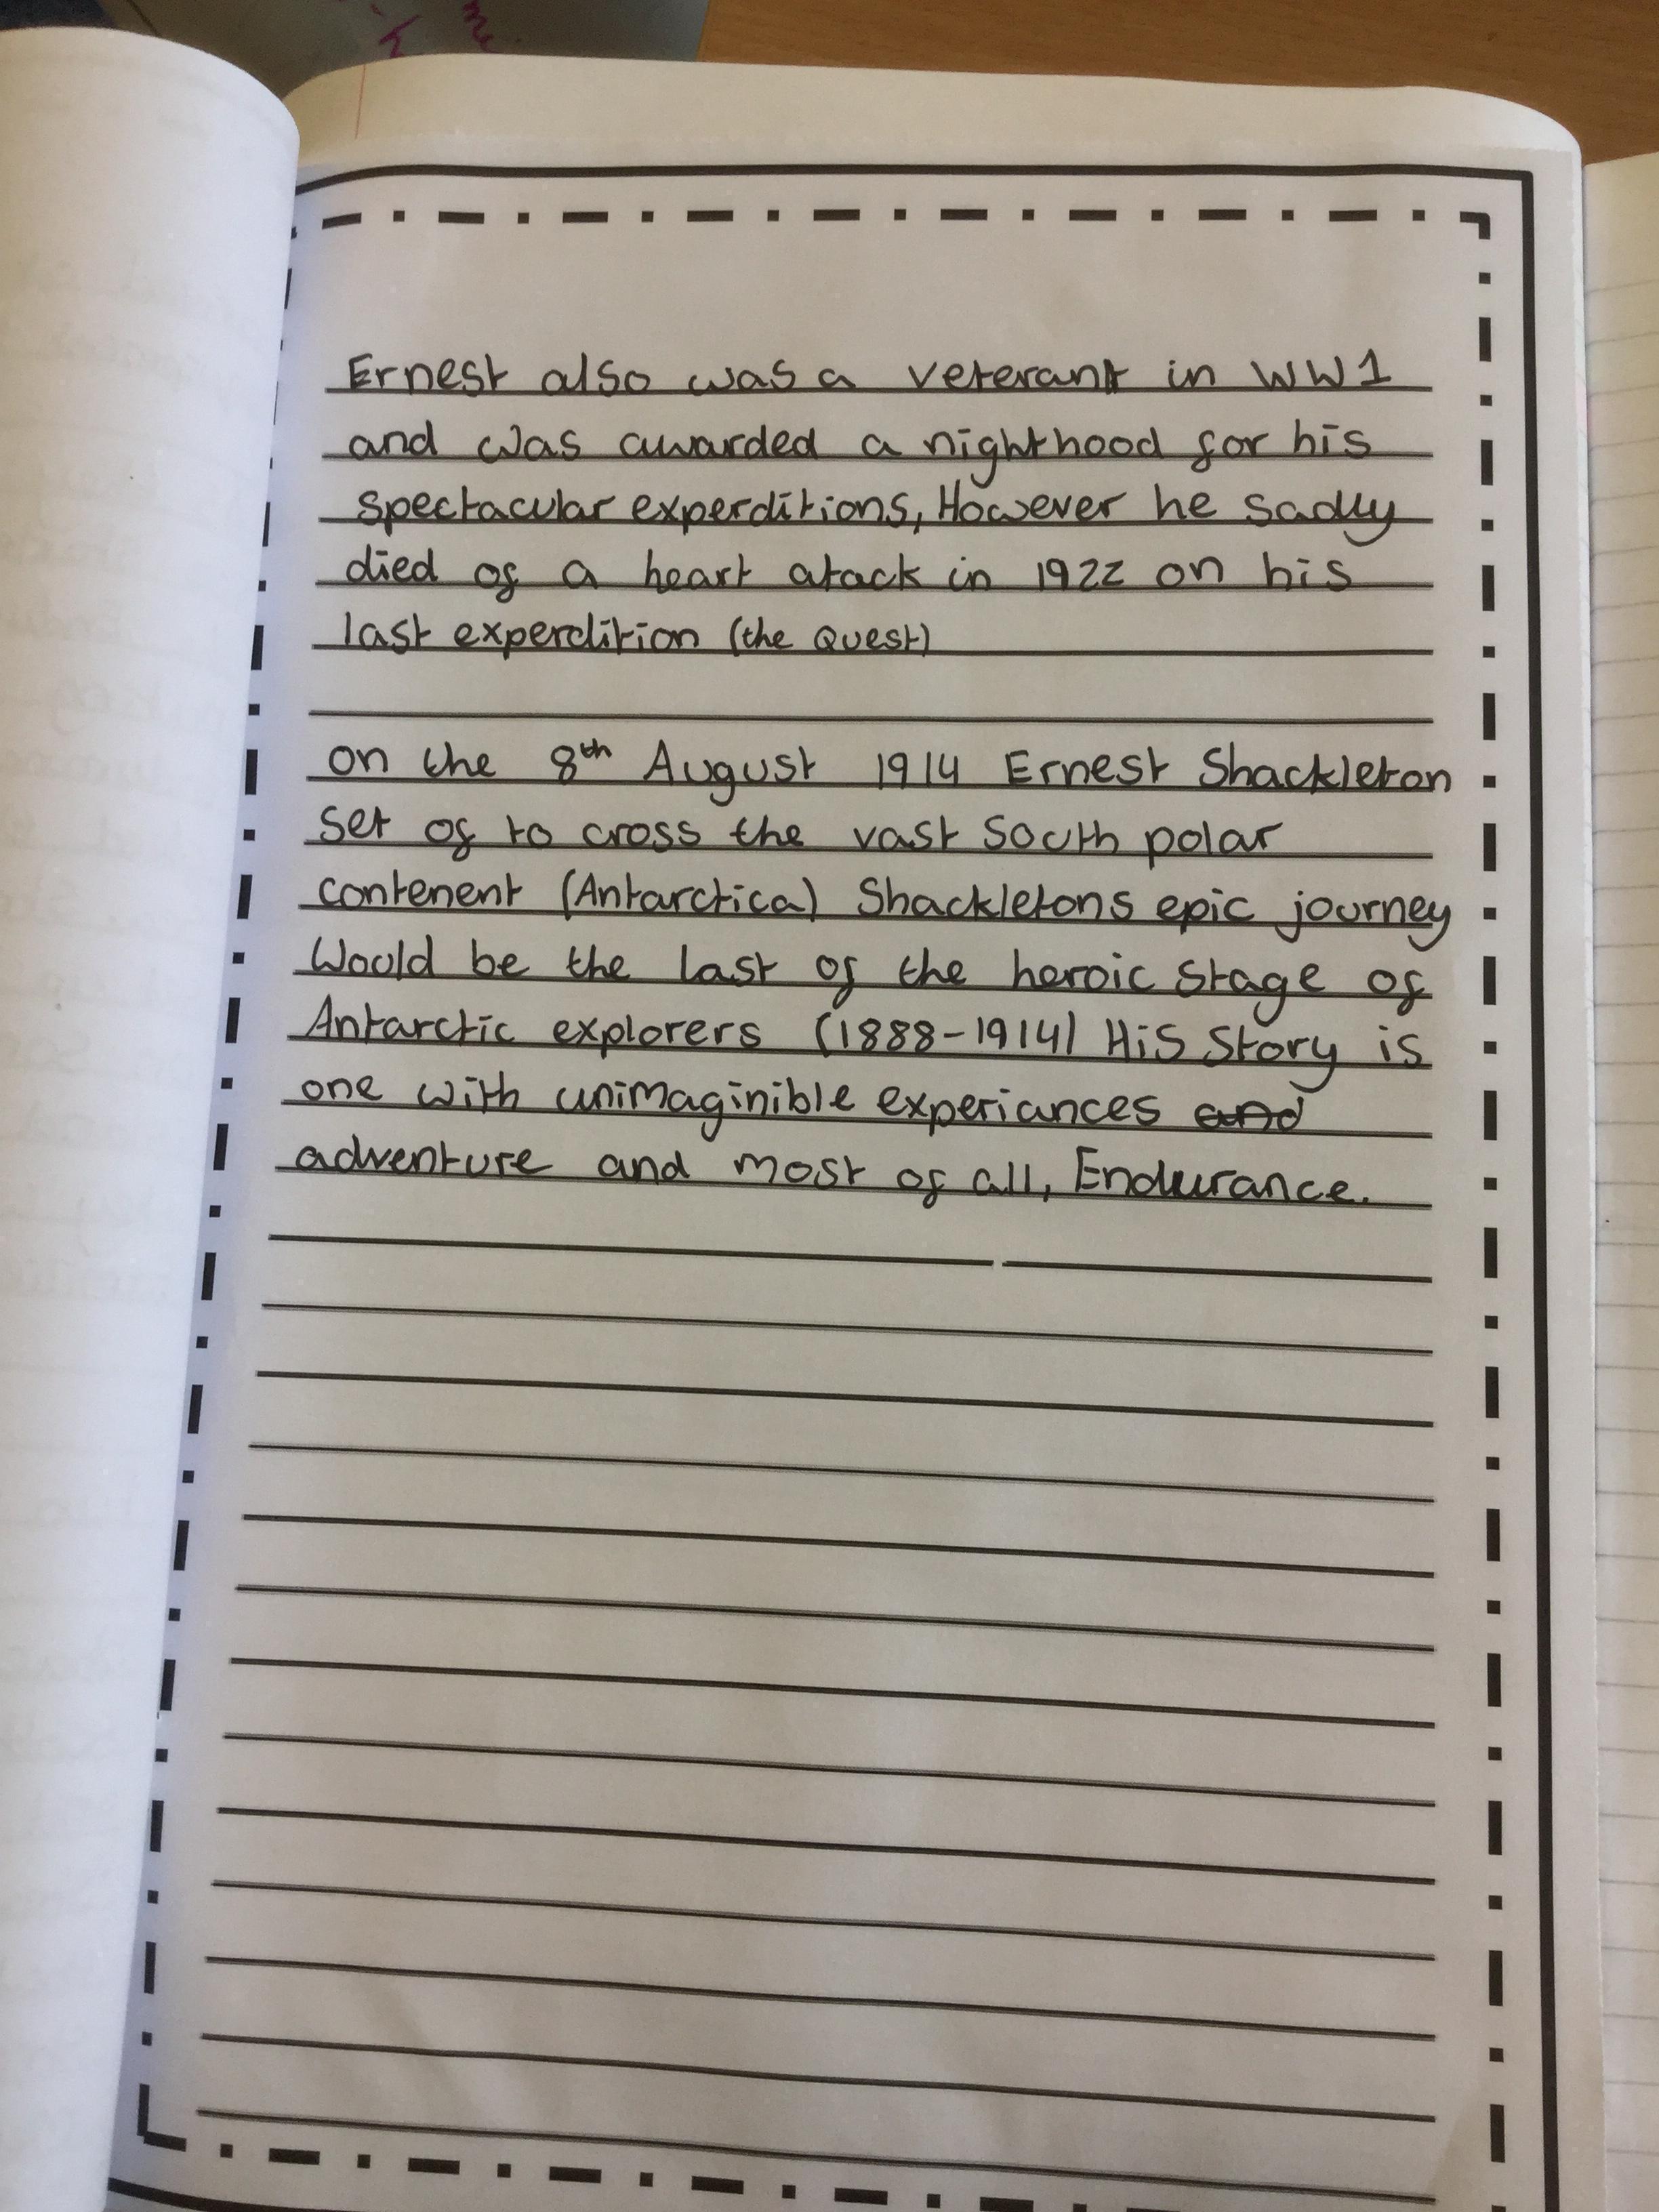 Ernest also was a veterant in WW1
and was awarded a nighthood for his
spectacular experditions, However he sadly
died of a heart atack in 1922 on his
last experdition (the Quest)
on the 8th August 1914 Ernest Shackleton
set of to cross the vast South polar
contenent (Antarctica) Shackletons epic journey
Would be the last of the heroic stage of
Antarctic explorers (1888-1914) His Story is
one with unimaginible experiances and
adventure and most of all, Endurance.